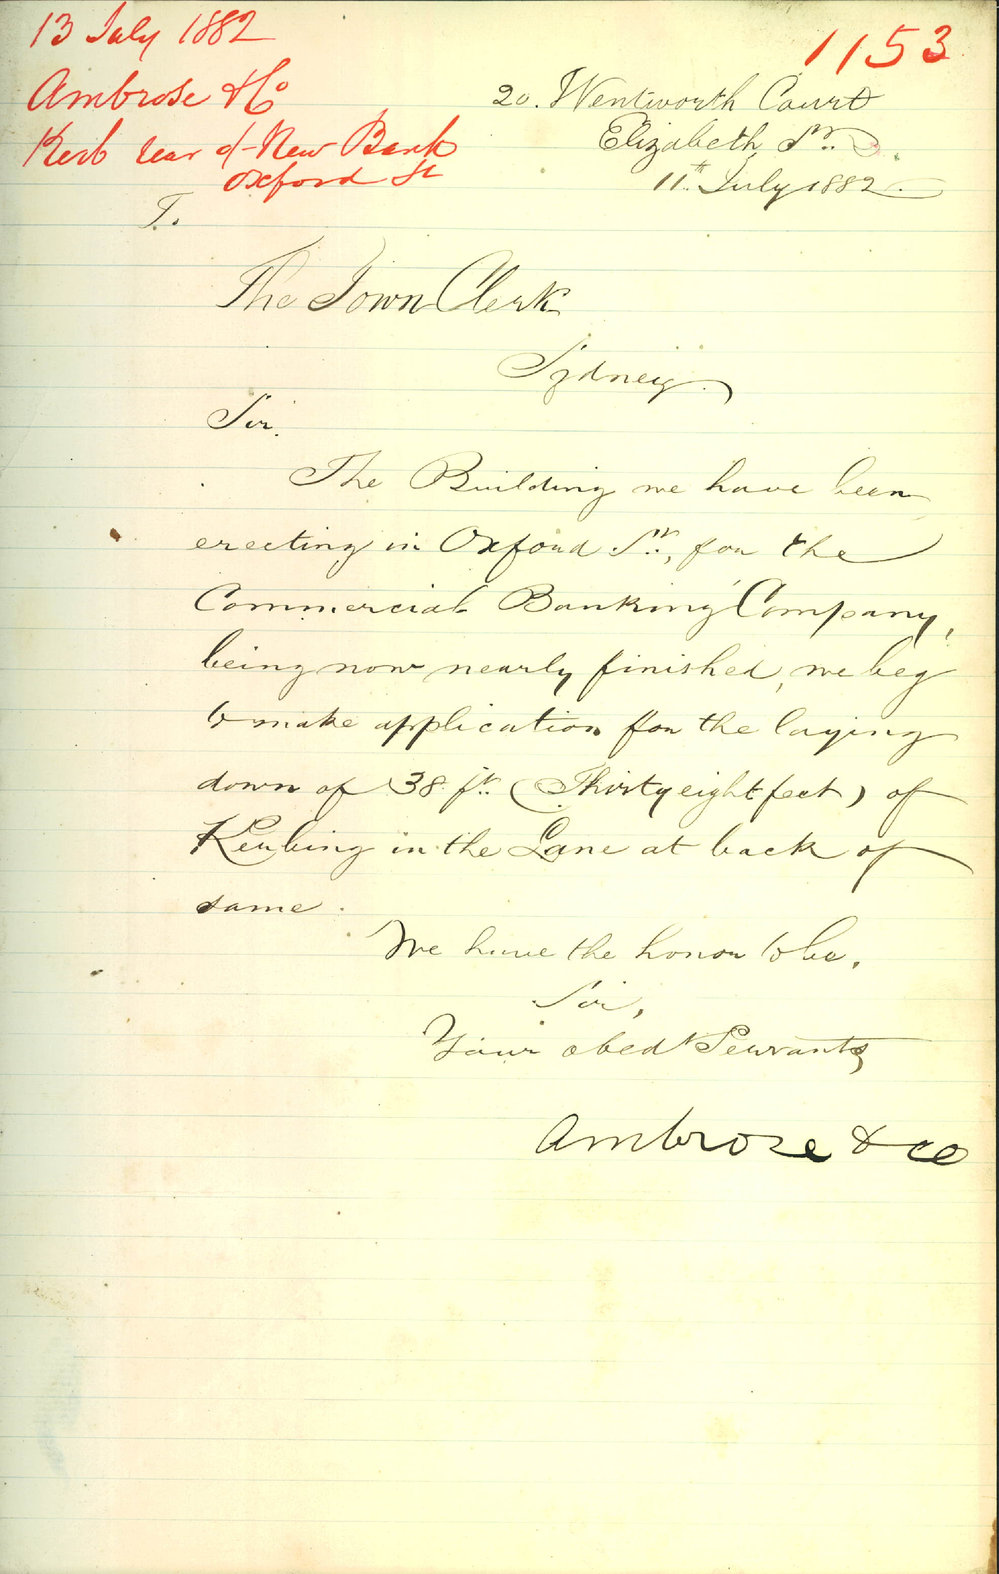 13 July 1882
1153
Ambrose & Co
Kerb rear of New Bank
Oxford St
20. Wentworth Court
Elizabeth St.
11th July 1882.
To
The Town Clerk
Sydney.
Sir,
The Building we have been
erecting in Oxford St., for the
Commercial Banking Company,
being now nearly finished, we beg
to make application for the laying
down of 38 ft. (Thirty eight feet) of
Kerbing in the Lane at back of
same.
We have the honor to be,
Sir,
Your obedt Servants,
Ambrose & Co